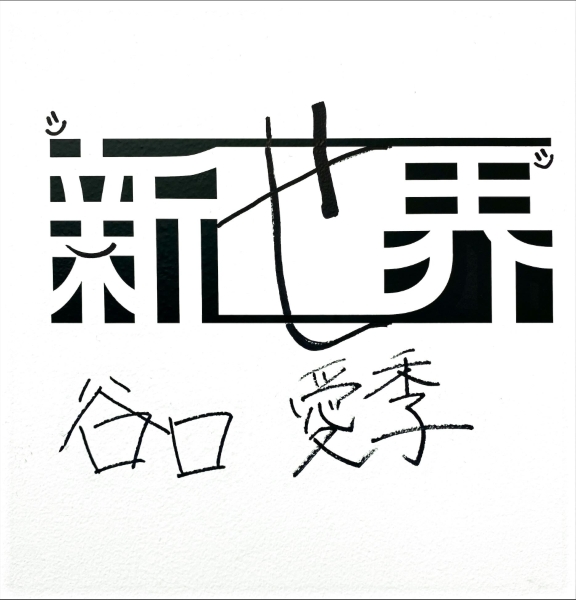 新世界
谷口 愛季